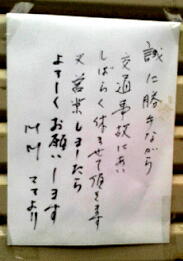 誠に勝手ながら
交通事故にあい
しばらく休ませて頂きます
又営業しましたら
よろしくお願いします
ママより